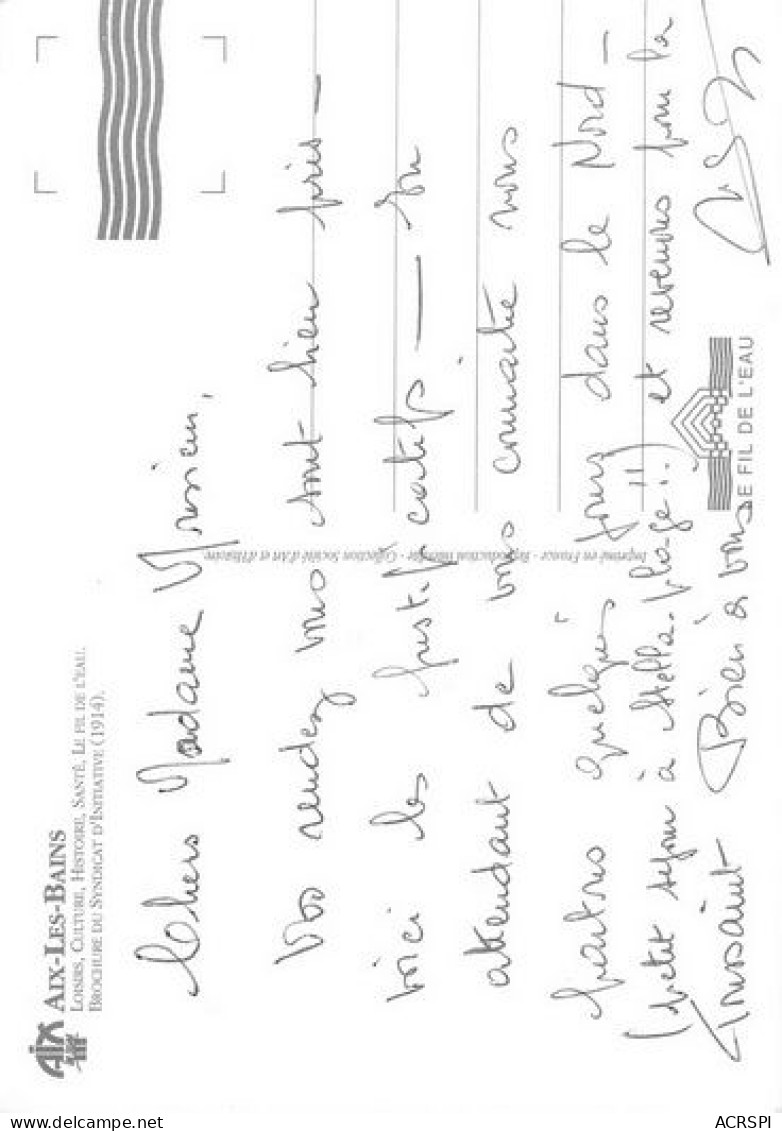 AIX-LES-BAINS
LOISIRS, CULTURE, HISTOIRE, SANTÉ, LE FIL DE L'EAU.
BROCHURE DU SYNDICAT D'INITIATIVE (1914).
Chers Madame Monsieur,
Vos rendez vous sont bien pris —
voici les justificatifs — En
attendant de vous connaître nous
partons quelques jours dans le Nord —
(petit séjour à Stella-plage!!) et revenons pour la
Toussaint Bien à vous
LE FIL DE L'EAU
Imprimé en France - Reproduction interdite - Collection Société d'Art et d'Histoire
delcampe.net
ACRSPI